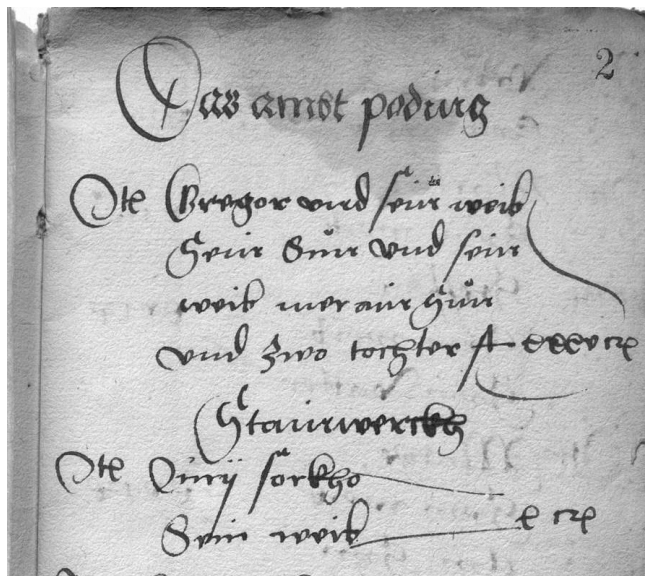 2
Das ambt poduig
Ite Gregor vnd sein weib
Sein Sun vnd sein
weib mer ain Sun
vnd Zwo tochter fl xxxv cr
Stainwerckh
Ite Jurij sorkho
Sein weib x cr